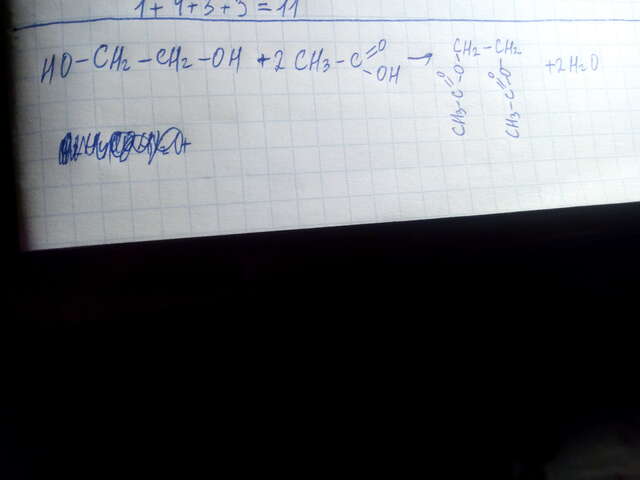 1 + 4 + 3 + 3 = 11
HO - CH₂ - CH₂ - OH + 2 CH₃ - C =O - OH → CH₂ - CH₂ + 2H₂O
CH₃ - C =O - O -
CH₃ - C =O - O -